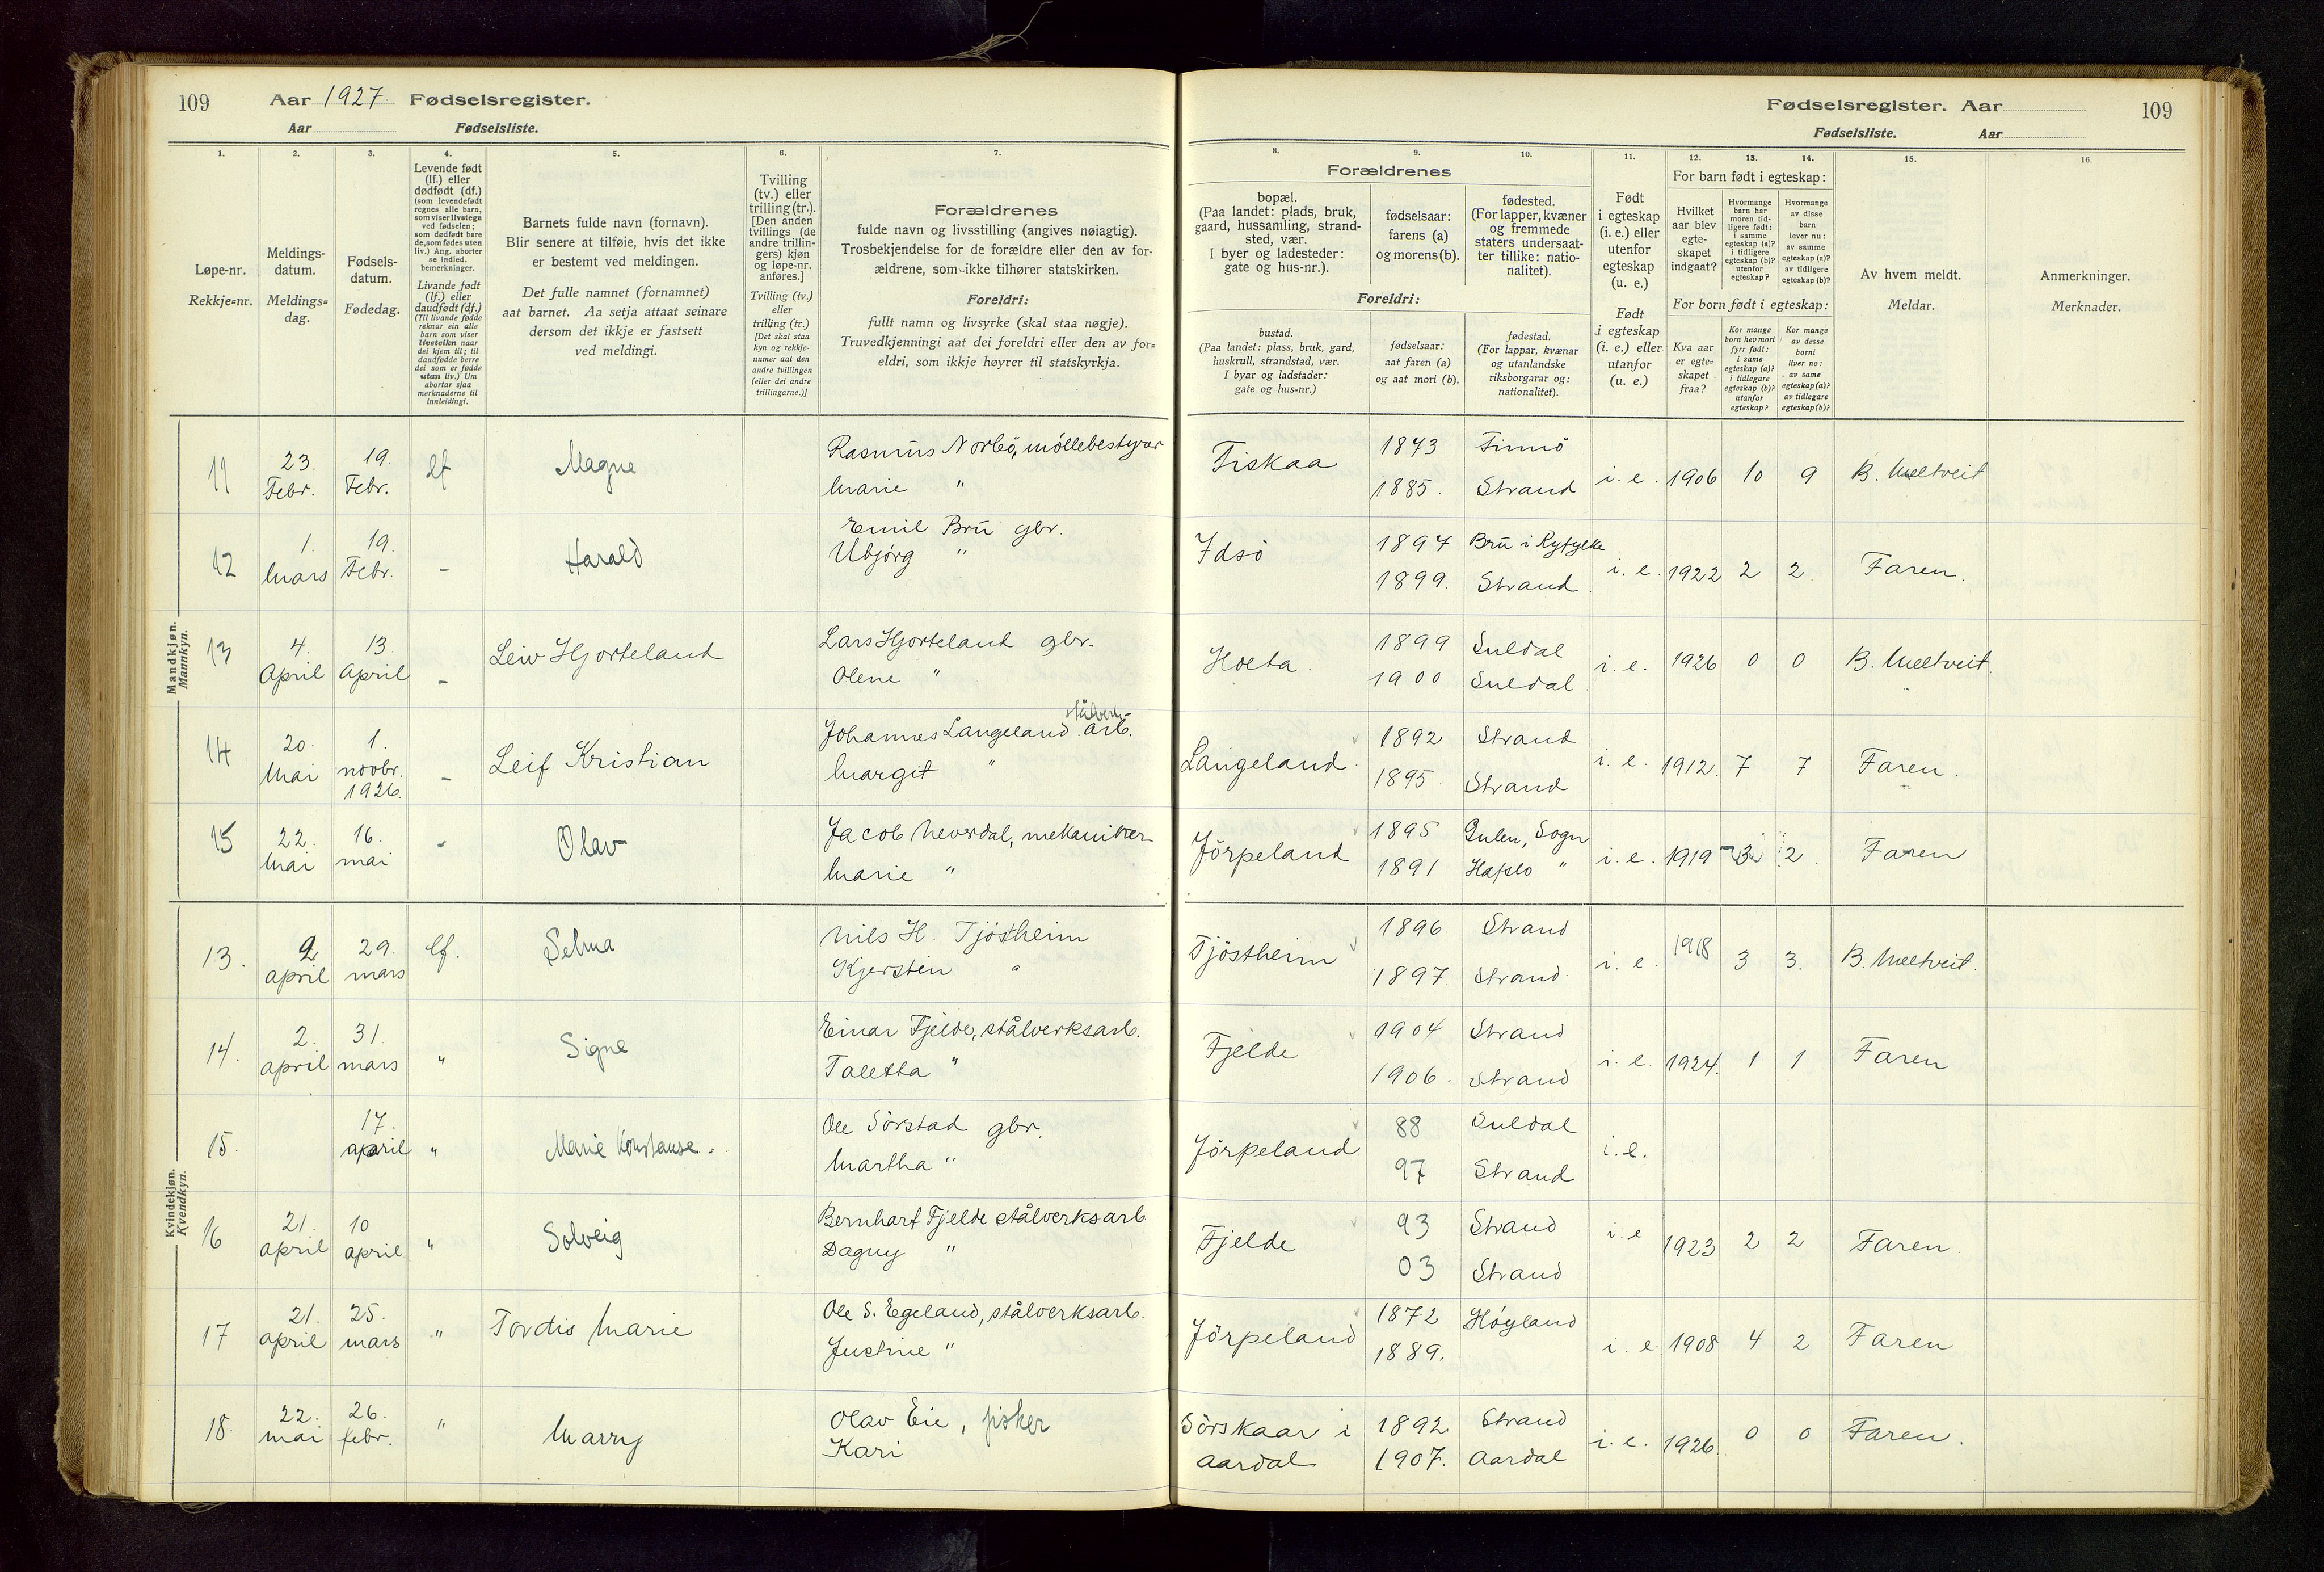 109 Aar 1927. Fødselsregister.
Aar Fødselsliste.
Fødselsregister. Aar 109
Fødselsliste. Aar
1. 2. 3. 4. 5. 6. 7.
Løpe-nr.
Rekkje=nr.
Meldings-
datum.
Meldings=
dag.
Fødsels-
datum.
Fødedag.
Levende født
(lf.) eller
dødfødt (df.)
(som levendefødt
regnes alle barn,
som viser livstegn
ved fødselen;
som dødfødt bare
de, som fødes uten
liv.) Ang. aborter
se indled.
bemerkninger.
Livande født
(lf.) eller
daudfødt (df.)
(Til livande fødde
reknar ein alle
barn som viser
livsteikn naar
dei kjem til; til
daudfødde berre
dei som er fødde
utan liv.) Um
abortar sjaa
merknaderne til
innleidingi.
Barnets fulde navn (fornavn).
Blir senere at tilføie, hvis det ikke
er bestemt ved meldingen.
Det fulle namnet (fornamnet)
aat barnet. Aa setja attaat seinare
dersom det ikkje er fastsett
ved meldingi.
Tvilling
(tv.) eller
trilling (tr.).
[Den anden
tvillings (de
andre trillin-
gers) kjøn
og løpe-nr.
anføres.]
Tvilling (tv.)
eller
trilling (tr.)
[Det skal staa
kyn og rekkje-
numer aat den
andre tvillingen
(eller dei andre
trillingarne.)]
Forældrenes
fulde navn og livsstilling (angives nøiagtig).
Trosbekjendelse for de forældre eller den av for-
ældrene, som ikke tilhører statskirken.
Foreldri:
fullt namn og livsyrke (skal staa nøgje).
Truvedkjenningi aat dei foreldri eller den av for=
eldri, som ikkje høyrer til statskyrkja.
8. 9. 10. 11. 12. 13. 14. 15. 16.
Forældrenes
bopæl.
(Paa landet: plads, bruk,
gaard, hussamling, strand-
sted, vær.
I byer og ladesteder:
gate og hus-nr.).
fødselsaar:
farens (a)
og morens (b).
fødested.
(For lapper, kvæner
og fremmede
staters undersaat-
ter tillike: natio-
nalitet).
Foreldri:
bustad.
(Paa landet: plass, bruk, gard,
huskrull, strandstad, vær.
I byar og ladstader:
gate og hus=nr.)
fødselsaar:
aat faren (a)
og aat mori (b).
fødestad.
(For lappar, kvænar
og utanlandske
riksborgarar og:
nationalitet).
Født
i egteskap
(i. e.) eller
utenfor
egteskap
(u. e.)
Født
i egteskap
(i. e.) eller
utanfor
(u. e.)
For barn født i egteskap:
Hvilket
aar blev
egte-
skapet
indgaat?
Hvormange
barn har
moren tid-
ligere født:
i samme
egteskap (a)?
i tidligere
egteskap (b)?
utenfor
egteskap?
Hvormange
av disse
barn
lever nu:
av samme
egteskap (a)?
av tidligere
egteskap (b)?
For born født i egteskap:
Kva aar
er egte=
skapet
fraa?
Kor mange
born hev mori
fyrr født:
i same
egteskap (a)?
i tidlegare
egteskap (b)?
utanfor
egteskap?
Kor mange
av desse
borni
liver no:
av same
egteskap (a)?
av tidlegare
egteskap (b)?
Av hvem meldt.
Meldar.
Anmerkninger.
Merknader.
Mandkjøn.
Mannkyn.
11 23. Febr. 19. Febr. lf Magne Rasmus Norbö, möllebestyrer Fiskaa 1873 Finnö i. e. 1906 10 9 B. Meltveit
Marie " 1885. Strand
12 1. Mars 19. Febr. - Harald Emil Bru gbr. Idsö 1897 Bru i Ryfylke i. e. 1922 2 2 Faren.
" 1899. Strand
13 4. April 13. April - Leiv Hjorteland Lars Hjorteland gbr. 1899 Suldal i. e. 1926 0 0 B. Meltveit.
Olene " 1900 Suldal.
14 20. Mai 1. novbr. 1926. - Leif Kristian Johannes Langeland stålverks- arb. Langeland. 1892 Strand i. e. 1912. 7 7 Faren.
Margit " 1895. Strand
15 22. Mai 16. mai - Olav Jacob mekaniker Jörpeland 1895 Gulen, Sogn i. e. 1919 3 2. Faren
Marie " 1891 Hafslo "
Kvindekjøn.
Kvendkyn.
13. 2 april 29. mars lf. Selma Nils H. Tjöstheim Tjöstheim 1896 Strand i. e. 1918 3 3. B. Meltveit.
Kjersten " 1897. Strand.
14. 2. april 31. mars " Signe Einar Fjelde, stålverksarb. Fjelde 1904 Strand i. e. 1924. 1 1 Faren
Taletta " 1906. Strand
15. 17. april " Marie Konstanse. Ole Sörstad gbr. Jörpeland 88 Suldal i. e.
Martha " 97 Strand
16 21. april 10 april " Solveig Bernhart Fjelde stålverksarb. Fjelde 93 Strand i. e 1923 2 2 Faren.
Dagny " 03 Strand
17 21. april 25. mars " Tordis Marie Ole S. Egeland, stålverksarb. Jörpeland 1872 Höyland i. e 1908 4 2 Faren
Justine " 1889.
18. 22. mai 26. febr. " Marry Olav Eie, fisker Sörskaar i Aardal 1892 Strand i. e. 1926. 0 0 Faren.
Kari 1907. Aardal